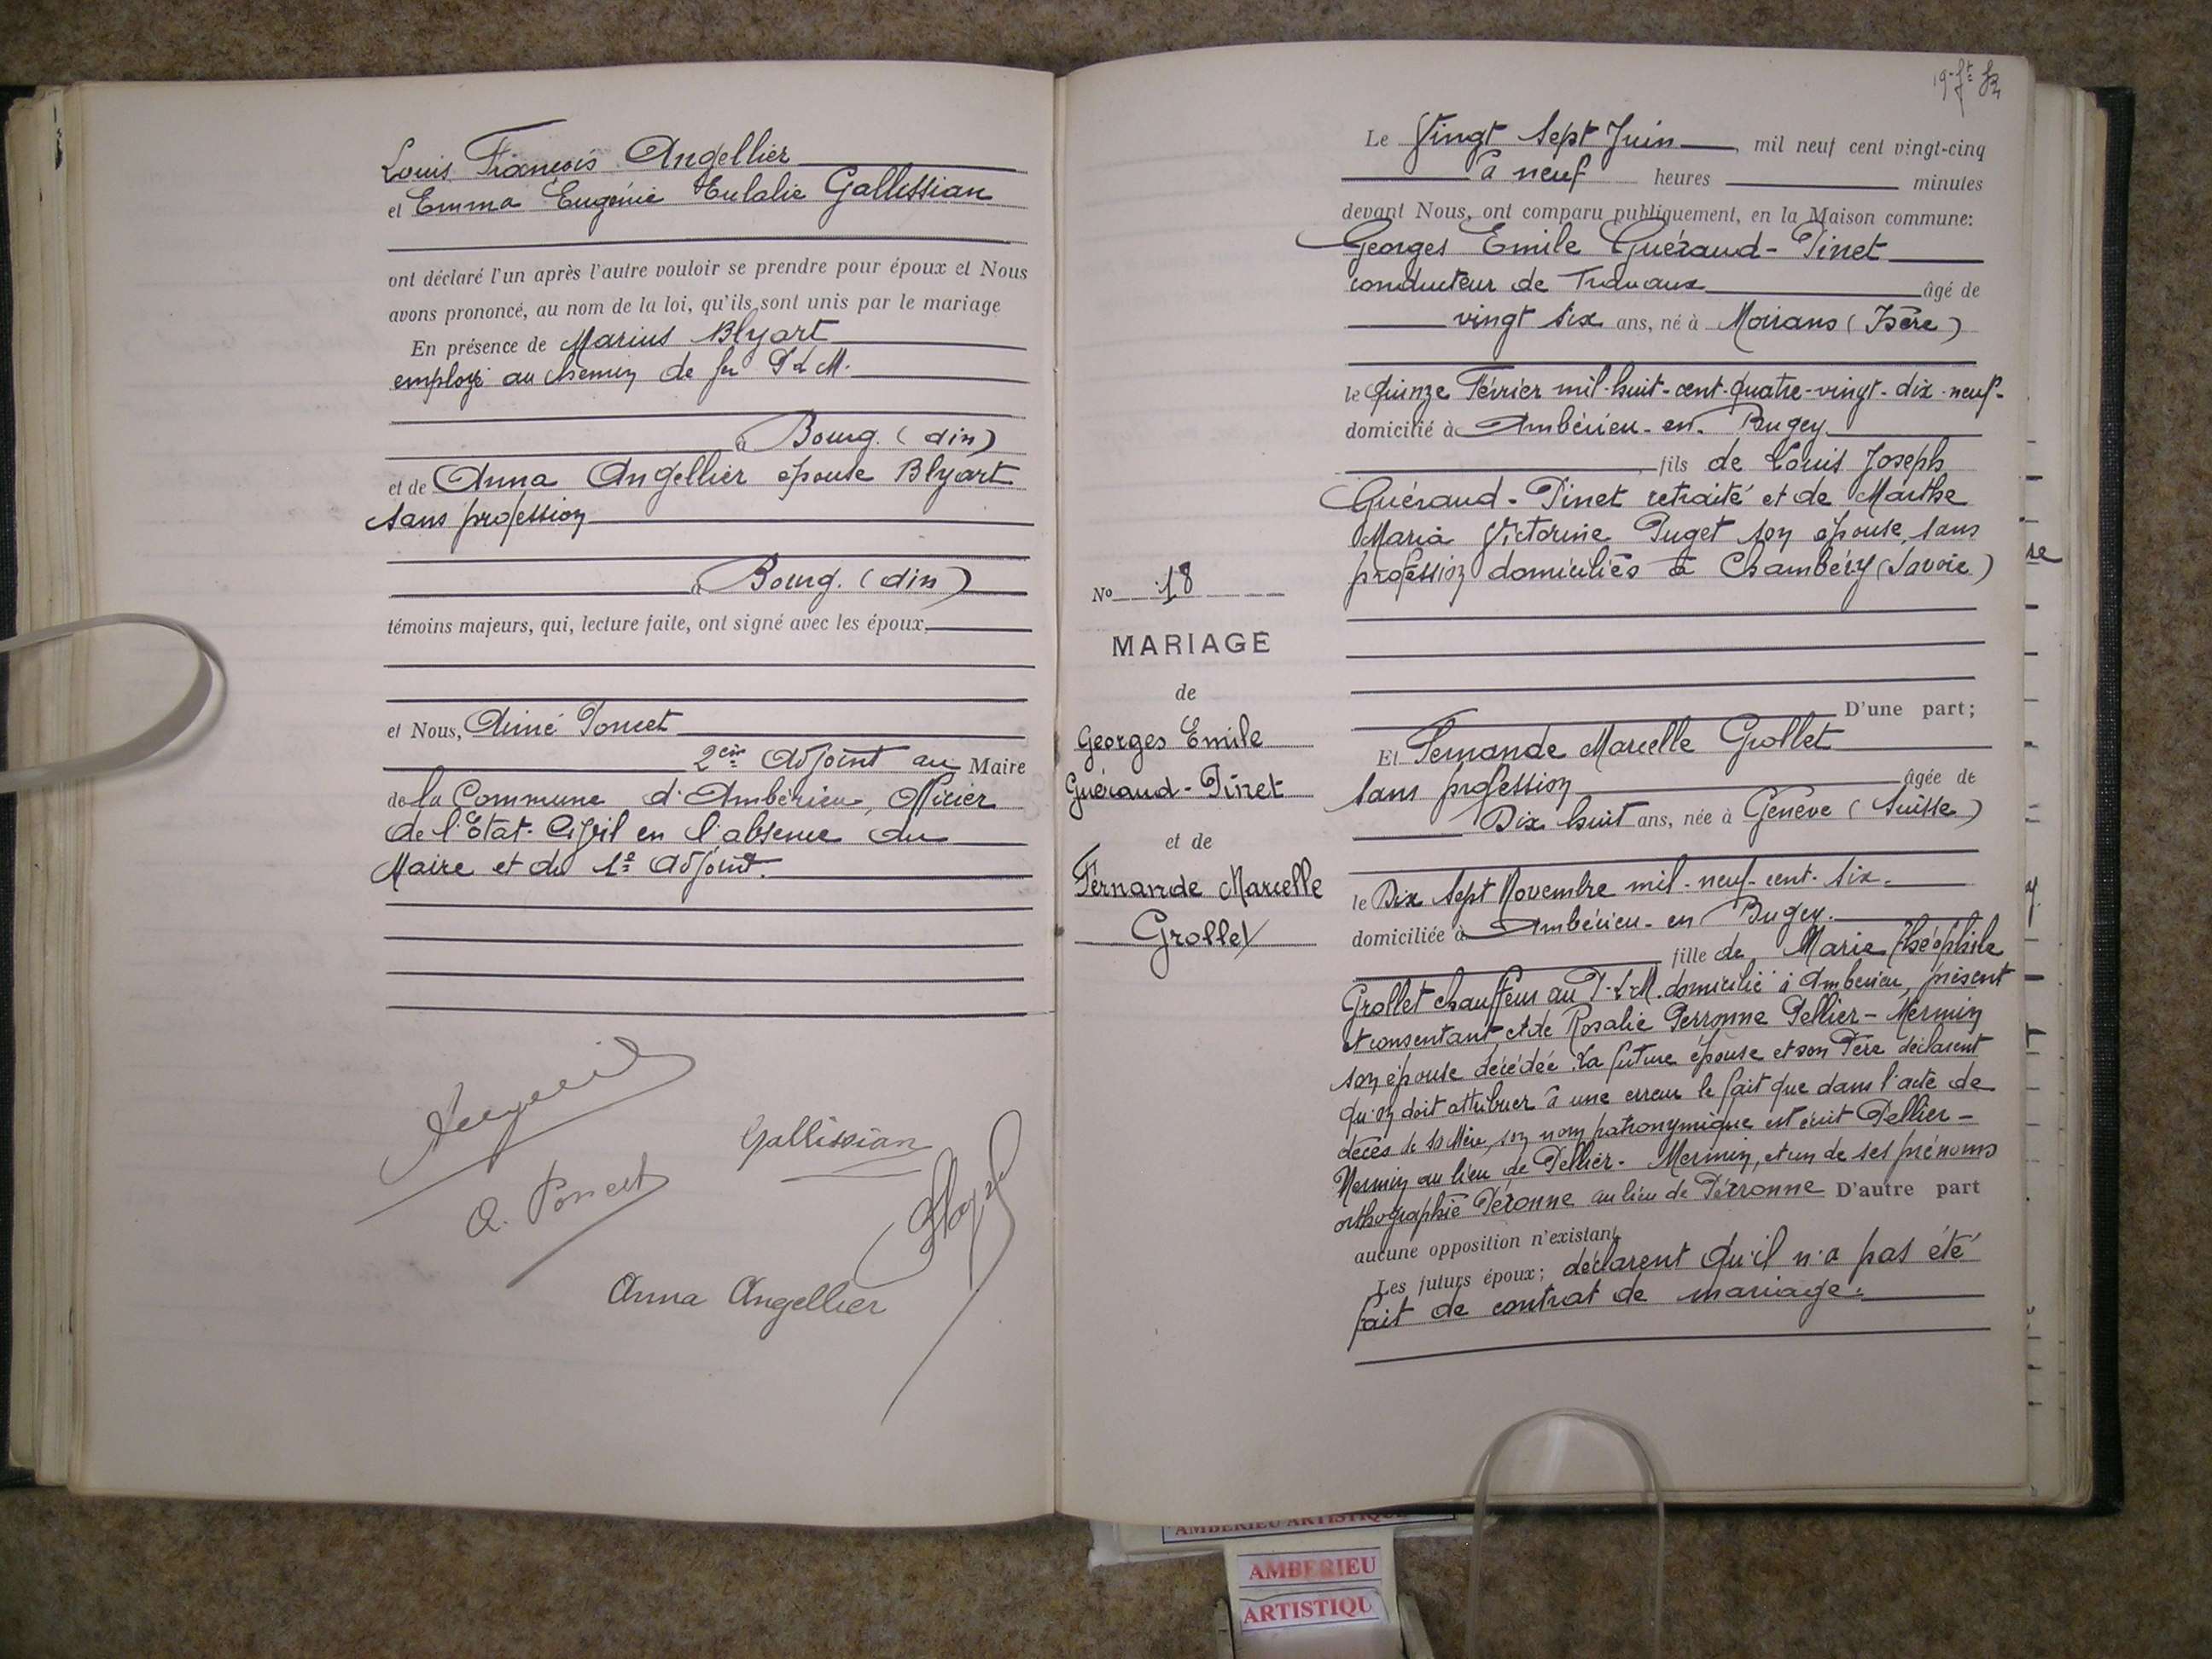 Louis François Angellier
et Emma Eugénie Eulalie Gallissian
ont déclaré l'un après l'autre vouloir se prendre pour époux et Nous
avons prononcé, au nom de la loi, qu'ils sont unis par le mariage
En présence de Marius Blyart
employé au chemin de fer P L M.
à Bourg. (Ain)
et de Anna Angellier épouse Blyart
sans profession
à Bourg. (Ain)
témoins majeurs, qui, lecture faite, ont signé avec les époux,
et Nous, Aimé Poncet
2em Adjoint au Maire
de la Commune d'Ambérieu, Officier
de l'Etat-Civil en l'absence du
Maire et du 1er Adjoint.
Gallissian
A. Poncet
Anna Angellier
19
Le Vingt sept Juin mil neuf cent vingt-cinq
à neuf heures minutes
devant Nous, ont comparu publiquement, en la Maison commune:
Georges Emile Guéraud-Pinet
conducteur de Travaux âgé de
vingt six ans, né à Moirans (Isère)
le quinze Février mil-huit-cent-quatre-vingt-dix-neuf-
domicilié à Ambérieu-en-Bugey.
fils de Louis Joseph
Guéraud-Pinet retraité et de Marthe
Maria Victorine Puget son épouse, sans
profession domiciliés à Chambéry (Savoie)
D'une part;
No 18
MARIAGE
de
Georges Emile
Guéraud-Pinet
et de
Fernande Marcelle
Grollet
Et Fernande Marcelle Grollet
sans profession âgée de
Dix huit ans, née à Genève (Suisse)
le Dix sept Novembre mil-neuf-cent-six.
domiciliée à Ambérieu-en Bugey.
fille de Marie Théophile
Grollet chauffeur au P.L.M. domicilié à Ambérieu, présent
et consentant et de Rosalie Perronne Pellier-Mermin
son épouse décédée. La future épouse et son Père déclarent
qu'on doit attribuer à une erreur le fait que dans l'acte de
décès de sa Mère, son nom patronymique est écrit Pellier-
Nermin au lieu de Pellier-Mermin, et un de ses prénoms
orthographié Péronne au lieu de Pérronne D'autre part
aucune opposition n'existant
Les futurs époux; déclarent qu'il n'a pas été
fait de contrat de mariage.
AMBERIEU ARTISTIQUE
AMBERIEU
ARTISTIQU